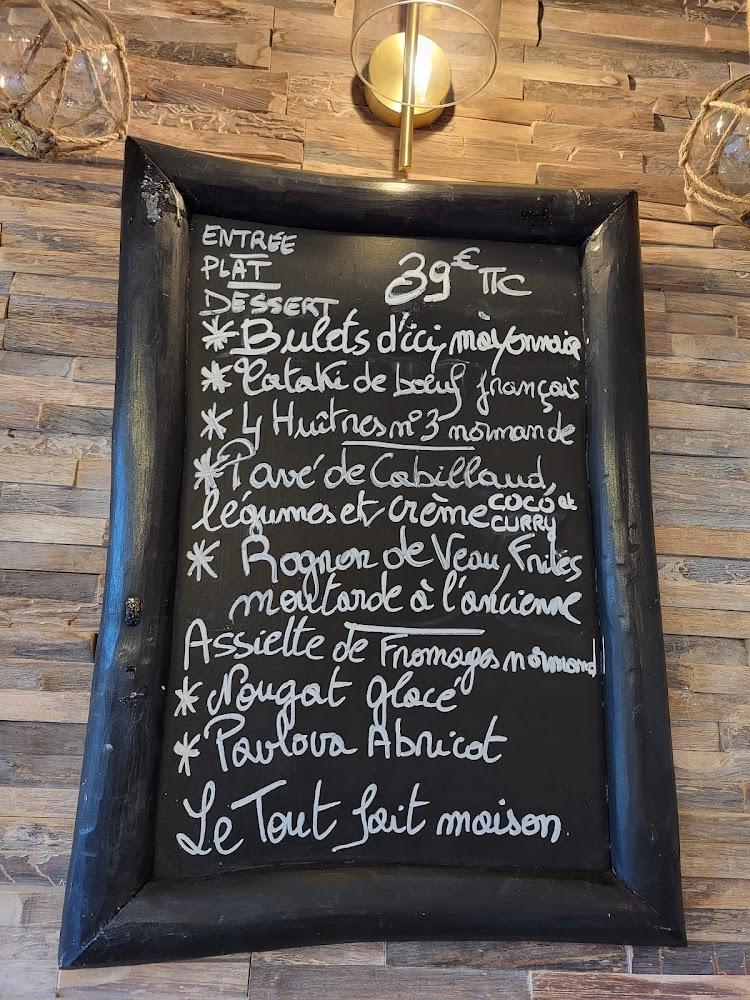 ENTRÉE
PLAT
DESSERT
39€ TTC
* Bulots d'ici, mayonnaise
* Tataki de boeuf français
* 4 Huîtres n°3 normande
* Pavé de Cabillaud,
légumes et crème COCO et CURRY
* Rognon de Veau, Frites
moutarde à l'ancienne
Assiette de Fromages normand
* Nougat glacé
* Pavlova Abricot
Le Tout fait maison